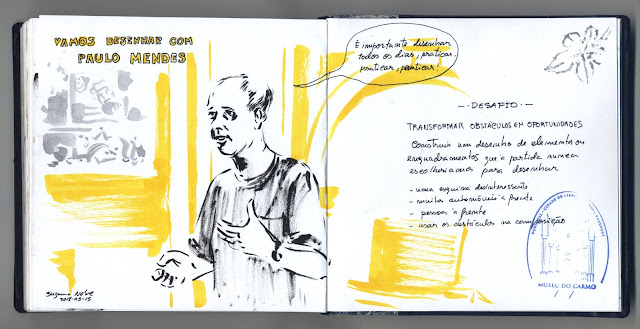 VAMOS DESENHAR COM
PAULO MENDES
É importante desenhar
todos os dias, praticar,
praticar, praticar!
- DESAFIO -
TRANSFORMAR OBSTÁCULOS EM OPORTUNIDADES
Construir um desenho de elementos ou
enquadramentos que à partida nunca
escolheríamos para desenhar
- uma esquina desinteressante
- muitos automóveis à frente
- pessoas à frente
- usar os obstáculos na composição
MUSEU DO CARMO